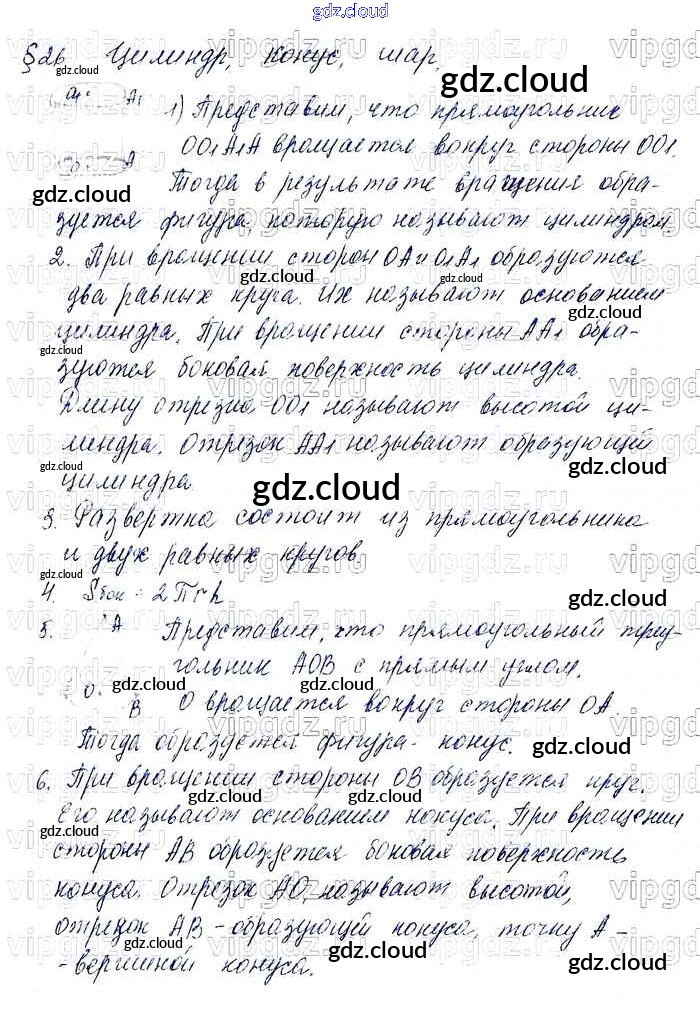 gdz.cloud
§26 Цилиндр, конус, шар.
A1
1) Представим, что прямоугольник
A
OO1A1A вращается вокруг стороны OO1.
Тогда в результате вращения обра-
зуется фигура, которую называют цилиндром
2. При вращении сторон OA и O1A1 образуются
два равных круга. Их называют основанием
цилиндра. При вращении стороны AA1 обра-
зуются боковая поверхность цилиндра.
Длину отрезка OO1 называют высотой ци-
линдра. Отрезок AA1 называют образующей
цилиндра
gdz.cloud
3. Развертка состоит из прямоугольника
и двух равных кругов.
4. Sбок = 2Пrh
5. A Представим, что прямоугольный треу-
гольник AOB с прямым углом.
O
B
O вращается вокруг стороны OA.
Тогда образуется фигура - конус.
6. При вращении стороны OB образуется круг.
Его называют основанием конуса. При вращении
стороны AB образуется боковая поверхность
конуса. Отрезок AO называют высотой,
отрезок AB - образующей конуса, точку A -
- вершиной конуса.